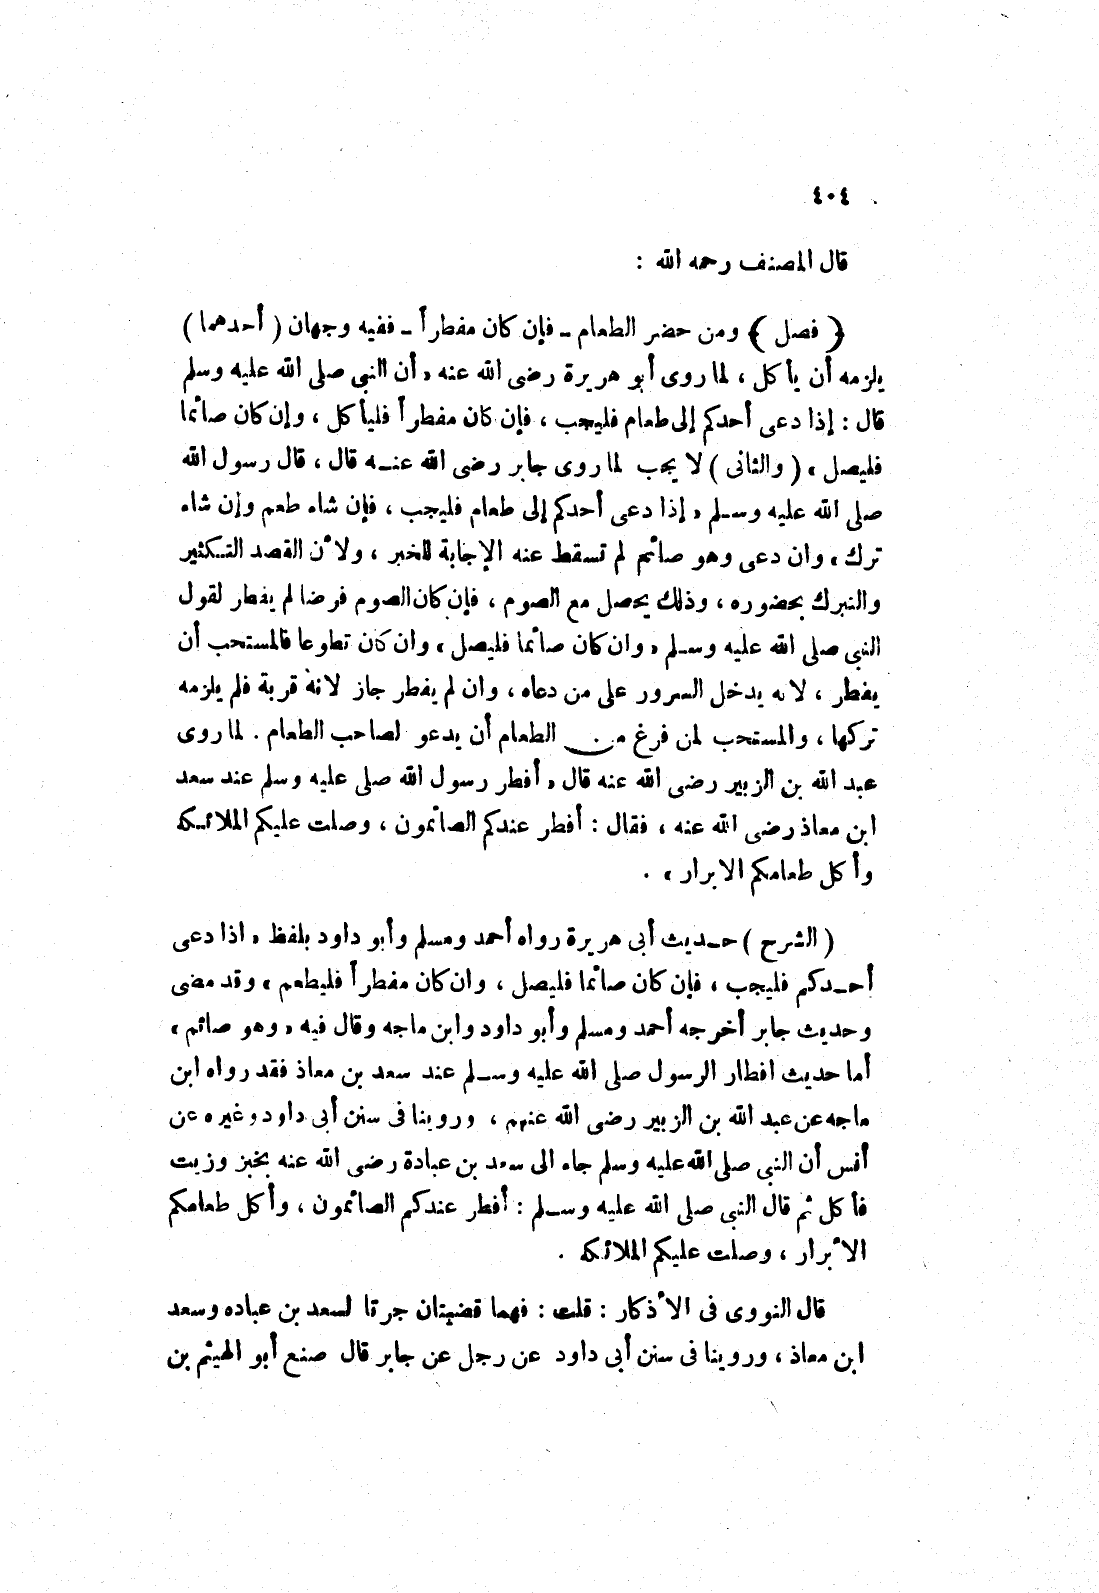 ٤٠٤
قال المصنف رحمه الله :
﴿ فصل ﴾ ومن حضر الطعام ــ فإن كان مفطراً ــ ففيه وجهان ( أحدهما )
يلزمه أن يأكل ، لما روى أبو هريرة رضى الله عنه « أن النبى صلى الله عليه وسلم
قال : إذا دعى أحدكم إلى طعام فليجب ، فإن كان مفطراً فليأكل ، وإن كان صائما
فليصل » ( والثانى ) لا يجب لما روى جابر رضى الله عنه قال ، قال رسول الله
صلى الله عليه وسلم « إذا دعى أحدكم إلى طعام فليجب ، فإن شاء طعم وإن شاء
ترك » وان دعى وهو صائم لم تسقط عنه الإجابة للخبر ، ولأن القصد التكثير
والتبرك بحضوره ، وذلك يحصل مع الصوم ، فإن كان الصوم فرضا لم يفطر لقول
النبى صلى الله عليه وسلم « وان كان صائما فليصل » وان كان تطوعا فالمستحب أن
يفطر ، لانه يدخل السرور على من دعاه ، وان لم يفطر جاز لانه قربة فلم يلزمه
تركها ، والمستحب لمن فرغ من الطعام أن يدعو لصاحب الطعام . لما روى
عبد الله بن الزبير رضى الله عنه قال « أفطر رسول الله صلى عليه وسلم عند سعد
ابن معاذ رضى الله عنه ، فقال : أفطر عندكم الصائمون ، وصلت عليكم الملائكة
وأكل طعامكم الابرار » .
( الشرح ) حديث أبى هريرة رواه أحمد ومسلم وأبو داود بلفظ « اذا دعى
أحدكم فليجب ، فإن كان صائما فليصل ، وان كان مفطراً فليطعم » وقد مضى
وحديث جابر أخرجه أحمد ومسلم وأبو داود وابن ماجه وقال فيه « وهو صائم »
أما حديث افطار الرسول صلى الله عليه وسلم عند سعد بن معاذ فقد رواه ابن
ماجه عن عبد الله بن الزبير رضى الله عنهم ، وروينا فى سنن أبى داود وغيره عن
أنس أن النبى صلى الله عليه وسلم جاء الى سعد بن عبادة رضى الله عنه بخبز وزيت
فأكل ثم قال النبى صلى الله عليه وسلم : أفطر عندكم الصائمون ، وأكل طعامكم
الأبرار ، وصلت عليكم الملائكة .
قال النووى فى الأذكار : قلت : فهما قضيتان جرتا لسعد بن عباده وسعد
ابن معاذ ، وروينا فى سنن أبى داود عن رجل عن جابر قال صنع أبو الهيثم بن